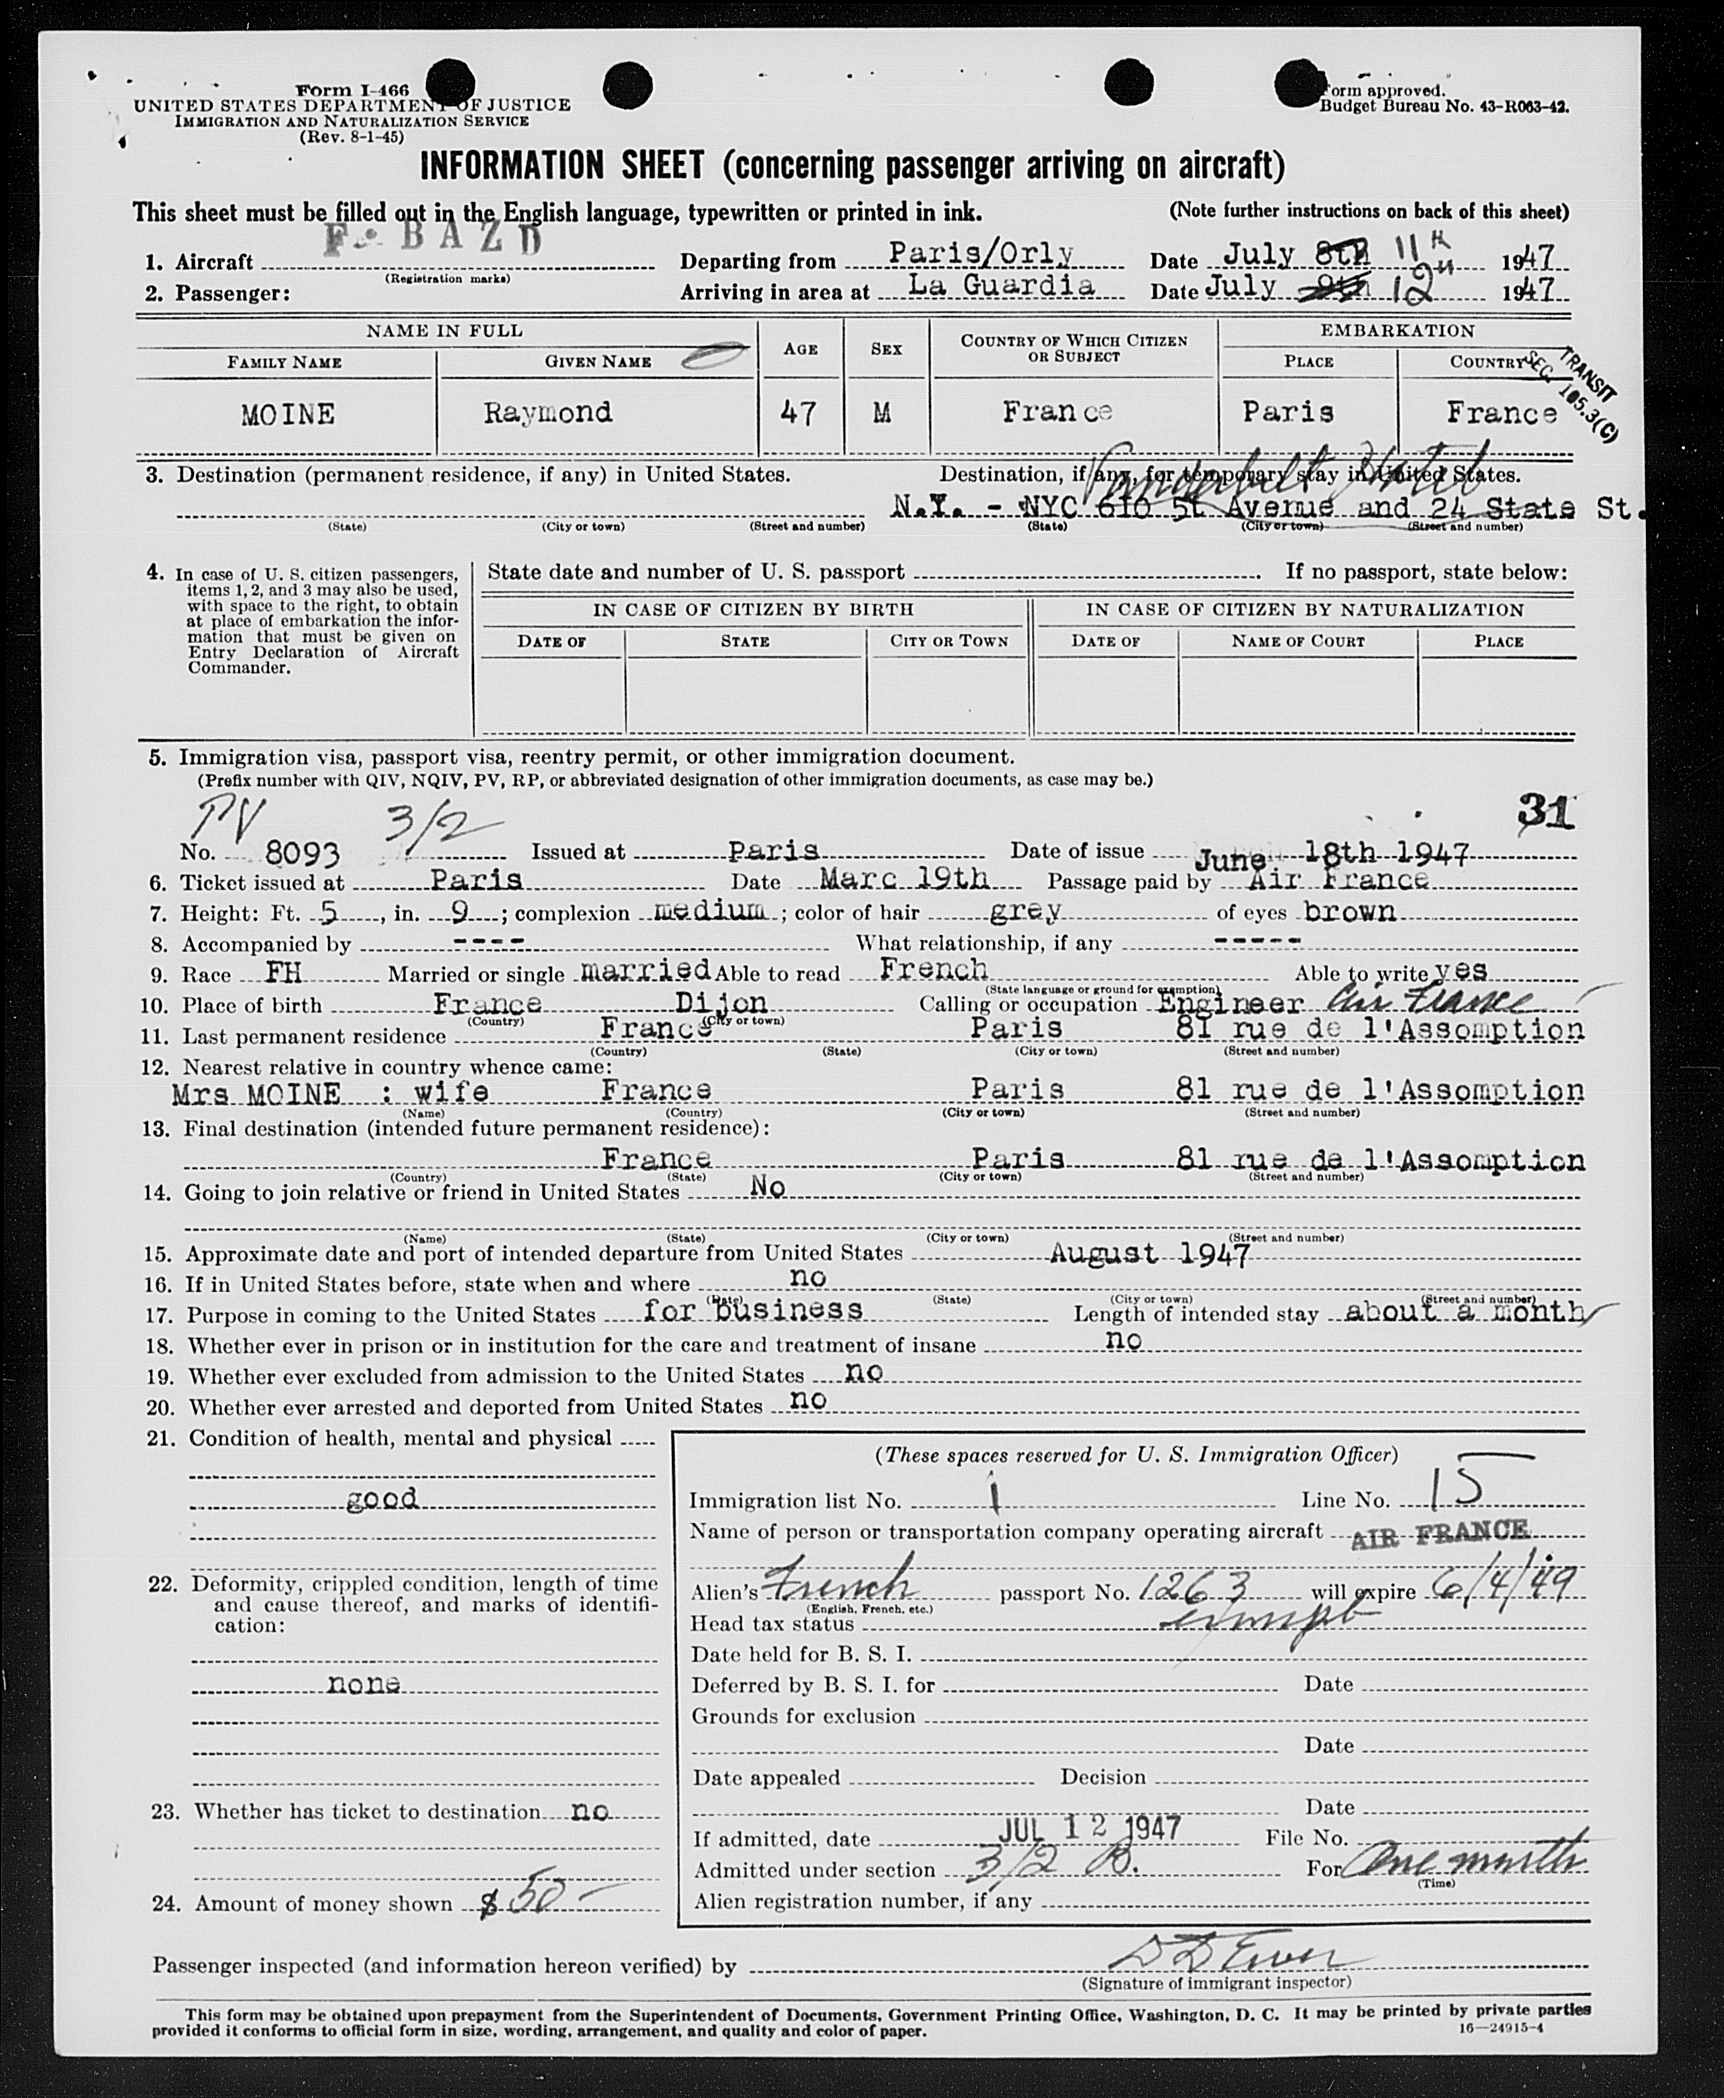 Form I-466
UNITED STATES DEPARTMENT OF JUSTICE
IMMIGRATION AND NATURALIZATION SERVICE
(Rev. 8-1-45)
Form approved.
Budget Bureau No. 43-R063-42.
INFORMATION SHEET (concerning passenger arriving on aircraft)
This sheet must be filled out in the English language, typewritten or printed in ink. (Note further instructions on back of this sheet)
F. BAZD
1. Aircraft Departing from Paris/Orly Date July 8th 11th 1947
(Registration marks)
2. Passenger: Arriving in area at La Guardia Date July 9th 12th 1947
NAME IN FULL AGE SEX COUNTRY OF WHICH CITIZEN OR SUBJECT EMBARKATION
FAMILY NAME GIVEN NAME PLACE COUNTRY
TRANSIT
SEC. 105.3(C)
MOINE Raymond 47 M France Paris France
3. Destination (permanent residence, if any) in United States. Destination, if any, for temporary stay in United States.
Vanderbilt Hotel
N.Y. - NYC 610 5t Avenue and 24 State St.
(State) (City or town) (Street and number) (State) (City or town) (Street and number)
4. In case of U. S. citizen passengers, items 1, 2, and 3 may also be used, with space to the right, to obtain at place of embarkation the information that must be given on Entry Declaration of Aircraft Commander.
State date and number of U. S. passport . If no passport, state below:
IN CASE OF CITIZEN BY BIRTH IN CASE OF CITIZEN BY NATURALIZATION
DATE OF STATE CITY OR TOWN DATE OF NAME OF COURT PLACE
5. Immigration visa, passport visa, reentry permit, or other immigration document.
(Prefix number with QIV, NQIV, PV, RP, or abbreviated designation of other immigration documents, as case may be.)
31
PV 3/2
No. 8093 Issued at Paris Date of issue June 18th 1947
6. Ticket issued at Paris Date Marc 19th Passage paid by Air France
7. Height: Ft. 5, in. 9; complexion medium; color of hair grey of eyes brown
8. Accompanied by ---- What relationship, if any -----
9. Race FH Married or single married Able to read French Able to write yes
(State language or ground for exemption)
10. Place of birth France Dijon Calling or occupation Engineer Air France
(Country) (City or town)
11. Last permanent residence France Paris 81 rue de l'Assomption
(Country) (State) (City or town) (Street and number)
12. Nearest relative in country whence came:
Mrs MOINE : wife France Paris 81 rue de l'Assomption
(Name) (Country) (City or town) (Street and number)
13. Final destination (intended future permanent residence):
France Paris 81 rue de l'Assomption
(Country) (State) (City or town) (Street and number)
14. Going to join relative or friend in United States No
(Name) (State) (City or town) (Street and number)
15. Approximate date and port of intended departure from United States August 1947
16. If in United States before, state when and where no
(Date) (State) (City or town) (Street and number)
17. Purpose in coming to the United States for business Length of intended stay about a month
18. Whether ever in prison or in institution for the care and treatment of insane no
19. Whether ever excluded from admission to the United States no
20. Whether ever arrested and deported from United States no
21. Condition of health, mental and physical
good
22. Deformity, crippled condition, length of time and cause thereof, and marks of identification:
none
23. Whether has ticket to destination no
24. Amount of money shown $50-
(These spaces reserved for U. S. Immigration Officer)
Immigration list No. 1 Line No. 15
Name of person or transportation company operating aircraft AIR FRANCE
Alien's French passport No. 1263 will expire 6/4/49
(English, French, etc.)
Head tax status exempt
Date held for B. S. I.
Deferred by B. S. I. for Date
Grounds for exclusion
Date
Date appealed Decision
Date
If admitted, date JUL 12 1947 File No.
Admitted under section 3/2 B. For One month
(Time)
Alien registration number, if any
Passenger inspected (and information hereon verified) by
(Signature of immigrant inspector)
This form may be obtained upon prepayment from the Superintendent of Documents, Government Printing Office, Washington, D. C. It may be printed by private parties
provided it conforms to official form in size, wording, arrangement, and quality and color of paper.
16—24915-4